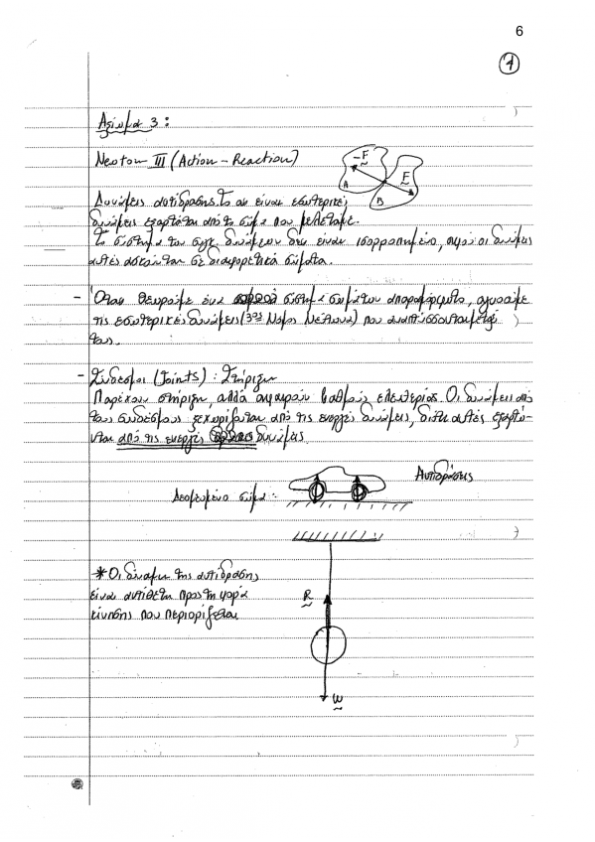 6
1
Αξίωμα 3:
Newton III (Action - Reaction)
-F
F
A
B
Δυνάμεις αντίδρασης. Το αν είναι εσωτερικές
δυνάμεις εξαρτάται από το σώμα που μελετάμε.
Το σύστημα των δυνάμεων δεν είναι ισορροπημένο, αφού οι δυνάμεις
αυτές ασκούνται σε διαφορετικά σώματα.
- Όταν θεωρούμε ένα σύστημα σωμάτων απαραμόρφωτο, αγνοούμε
τις εσωτερικές δυνάμεις (3ος Νόμος Νεύτωνα) που αναπτύσσονται μεταξύ
τους.
- Σύνδεσμοι (Joints): Στήριξη
Παρέχουν στήριξη αλλά αφαιρούν βαθμούς ελευθερίας. Οι δυνάμεις από
τους συνδέσμους ξεχωρίζονται από τις ενεργές δυνάμεις, διότι αυτές εξαρτώ-
νται από τις ενεργές δυνάμεις.
Δεσμευμένο σώμα:
Αντιδράσεις
* Οι δύναμη της αντίδρασης
είναι αντίθετη προς τη φορά
κίνησης που περιορίζεται
R
w